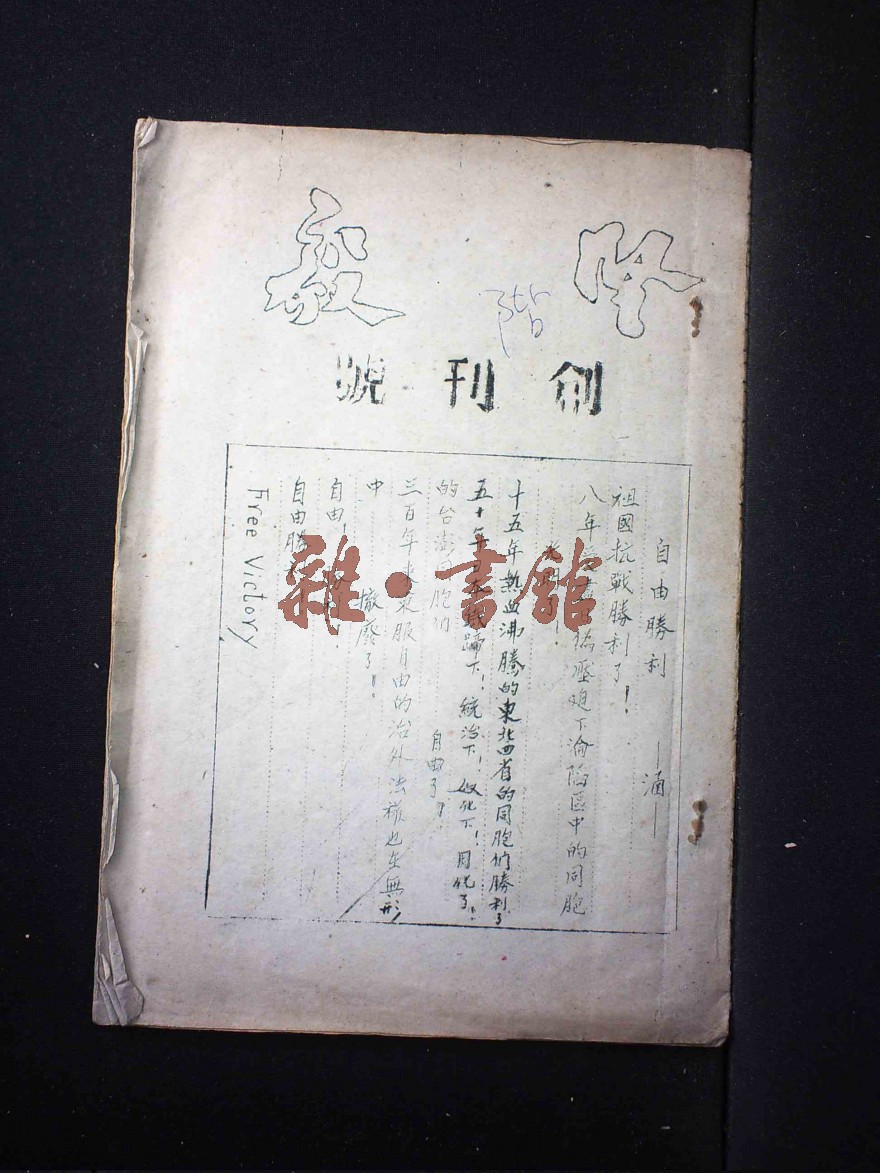 階
創刊號
自由勝利 ——涌——
祖國抗戰勝利了!
八年 壓迫下淪陷區中的同胞
十五年熱血沸騰的東北四省的同胞們勝利了
五十年 蹄下!統治下!奴化下!
的台澎 胞們 自由了!
三百年來束服自由的治外法權也在無形
中 撤廢了!
自由!
自由勝
Free Victory
雜·書館